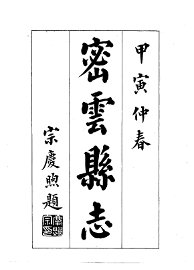 甲寅仲春
密雲縣志
宗慶煦題